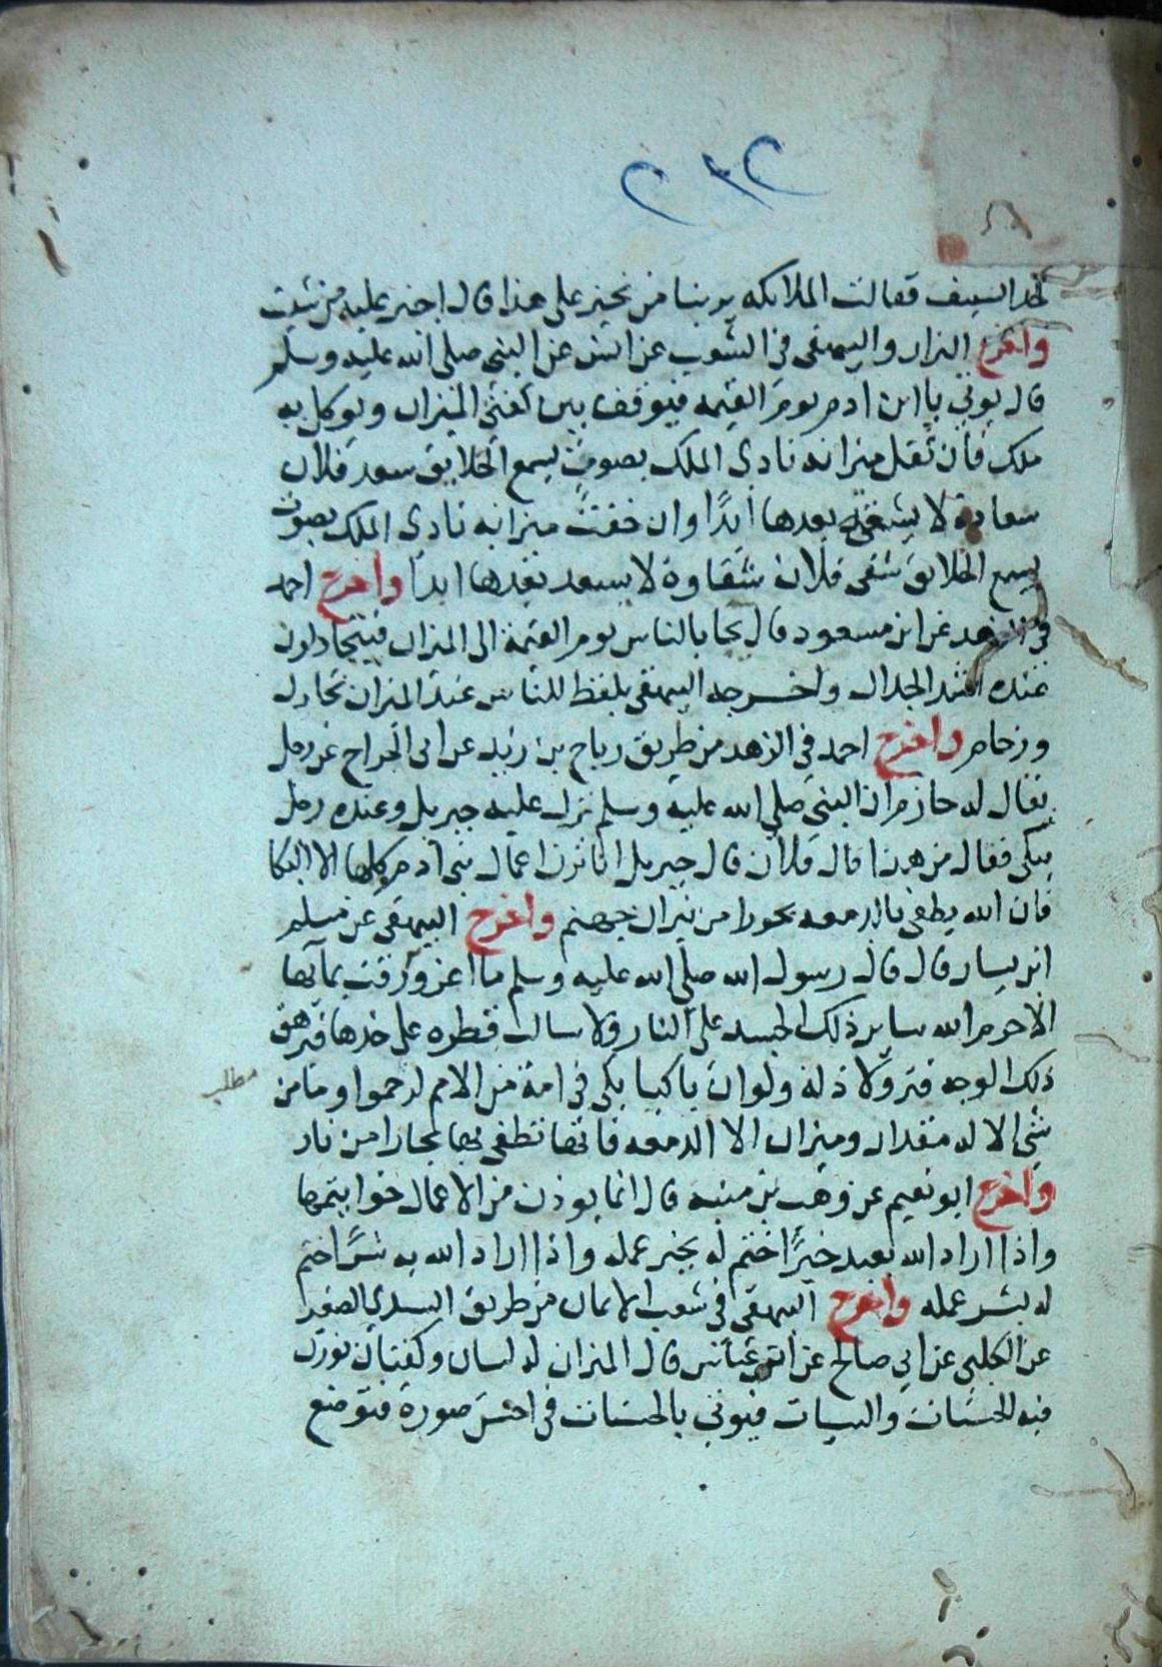 ٢١٢
كحد السيف فقالت الملائكه يربنا من نجيز على هذا قال اجيز عليه من شيت
واخرج البزار والبيهقى فى الشعب عن انس عن النبى صلى الله عليه وسلم
قال يوتي بابن ادم يوم القيمه فيوقف بين كفتى الميزان ويوكل به
ملك فان ثقل ميزانه نادى الملك بصوت يسمع الخلايق سعد فلان
سعادة لا يشقى بعدها ابدًا وان خفت ميزانه نادى الملك بصوت
يسمع الخلايق شقى فلان شقاوة لا يسعد بعدها ابدا واخرج احمد
فى الزهد عن ابن مسعود قال يجا بالناس يوم القيمة الى الميزان فيتجادلون
عنده اشد الجدال واخرجه البيهقى بلفظ للناس عند الميزان تجادل
وزحام واخرج احمد في الزهد من طريق رباح بن زيد عن ابى الجراح عن رجل
يقال له حازم ان النبى صلي الله عليه وسلم نزل عليه جبريل وعنده رجل
يبكى فقال من هذا قال فلان قال جبريل انا نزن اعمال بنى ادم كلها الا البكا
فان الله يطفى بالدمعه بحورا من نيران جهنم واخرج البيهقى عن مسلم
ابن يسار قال قال رسول الله صلي الله عليه وسلم ما اغرورقت بمآيها
الا حرم الله ساير ذلك الجسد على النار ولا سالت قطره على خدها فيرهق
ذلك الوجه قتر ولا ذلة ولو ان باكيا بكى فى امة من الامم لرحموا وما من
مطلب
شى الا له مقدار وميزان الا الدمعه فانها تطفى بها بحارا من نار
واخرج ابو نعيم عن وهب بن منبه قال انما يوزن من الاعمال خواتيمها
واذا اراد الله بعبد خيرًا ختم له بخير عمله واذا اراد الله به شرًا ختم
له بشر عمله واخرج البيهقى فى شعب الايمان من طريق السدي الصغير
عن الكلبى عن ابي صالح عن ابن عباس قال الميزان له لسان وكفتان يوزن
فيه الحسنات والسيات فيوتي بالحسنات فى احسن صورة فتوضع